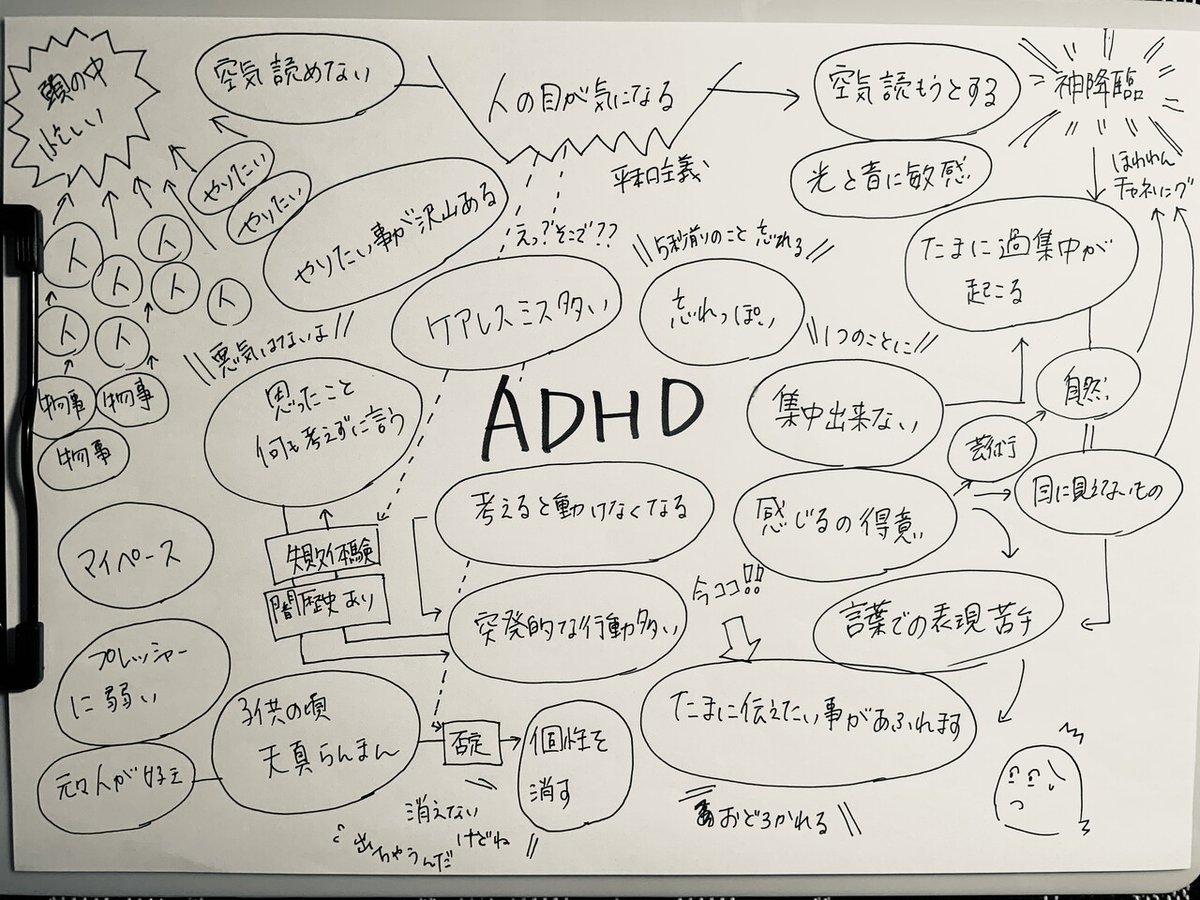 頭の中
忙しい
空気読めない
人の目が気になる
空気読もうとする
神降臨
ほわわん
チャネリング
平和主義
光と音に敏感
やりたい
やりたい
やりたい事が沢山ある
えっ?そこで??
5秒前のこと忘れる
たまに過集中が
起こる
人
人
人
人
人
人
人
ケアレスミス多い
忘れっぽい
悪気はないよ
1つのことに
物事
物事
物事
思ったこと
何も考えずに言う
ADHD
集中出来ない
自然
芸術
目に見えないもの
考えると動けなくなる
感じるの得意
マイペース
失敗体験
闇歴史あり
今ココ!!
突発的な行動多い
言葉での表現苦手
プレッシャー
に弱い
子供の頃
天真らんまん
否定
個性を
消す
たまに伝えたい事があふれます
元々人が好き
消えない
けどね
出ちゃうんだ
おどろかれる